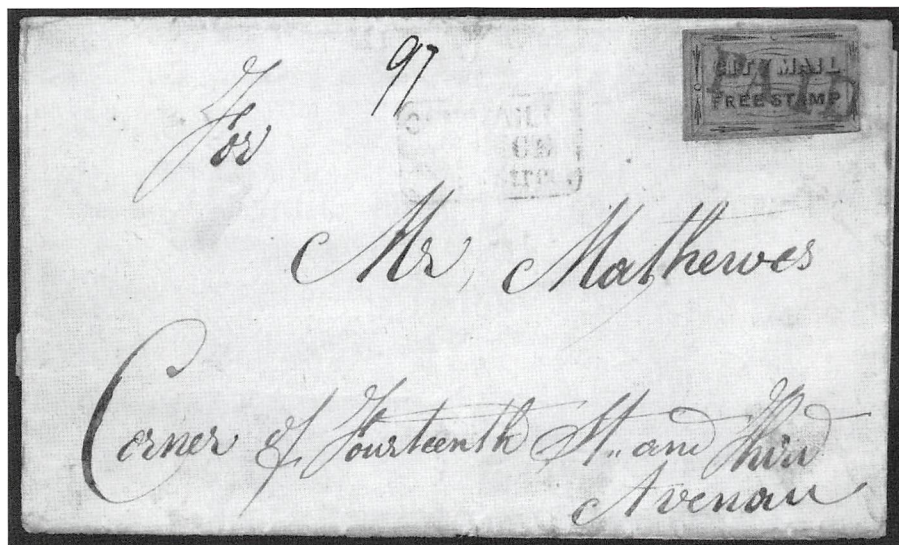 97
CITY MAIL
FREE STAMP
PAID
For
Mr, Mathewes
Corner of Fourteenth St.. and Third
Avenau